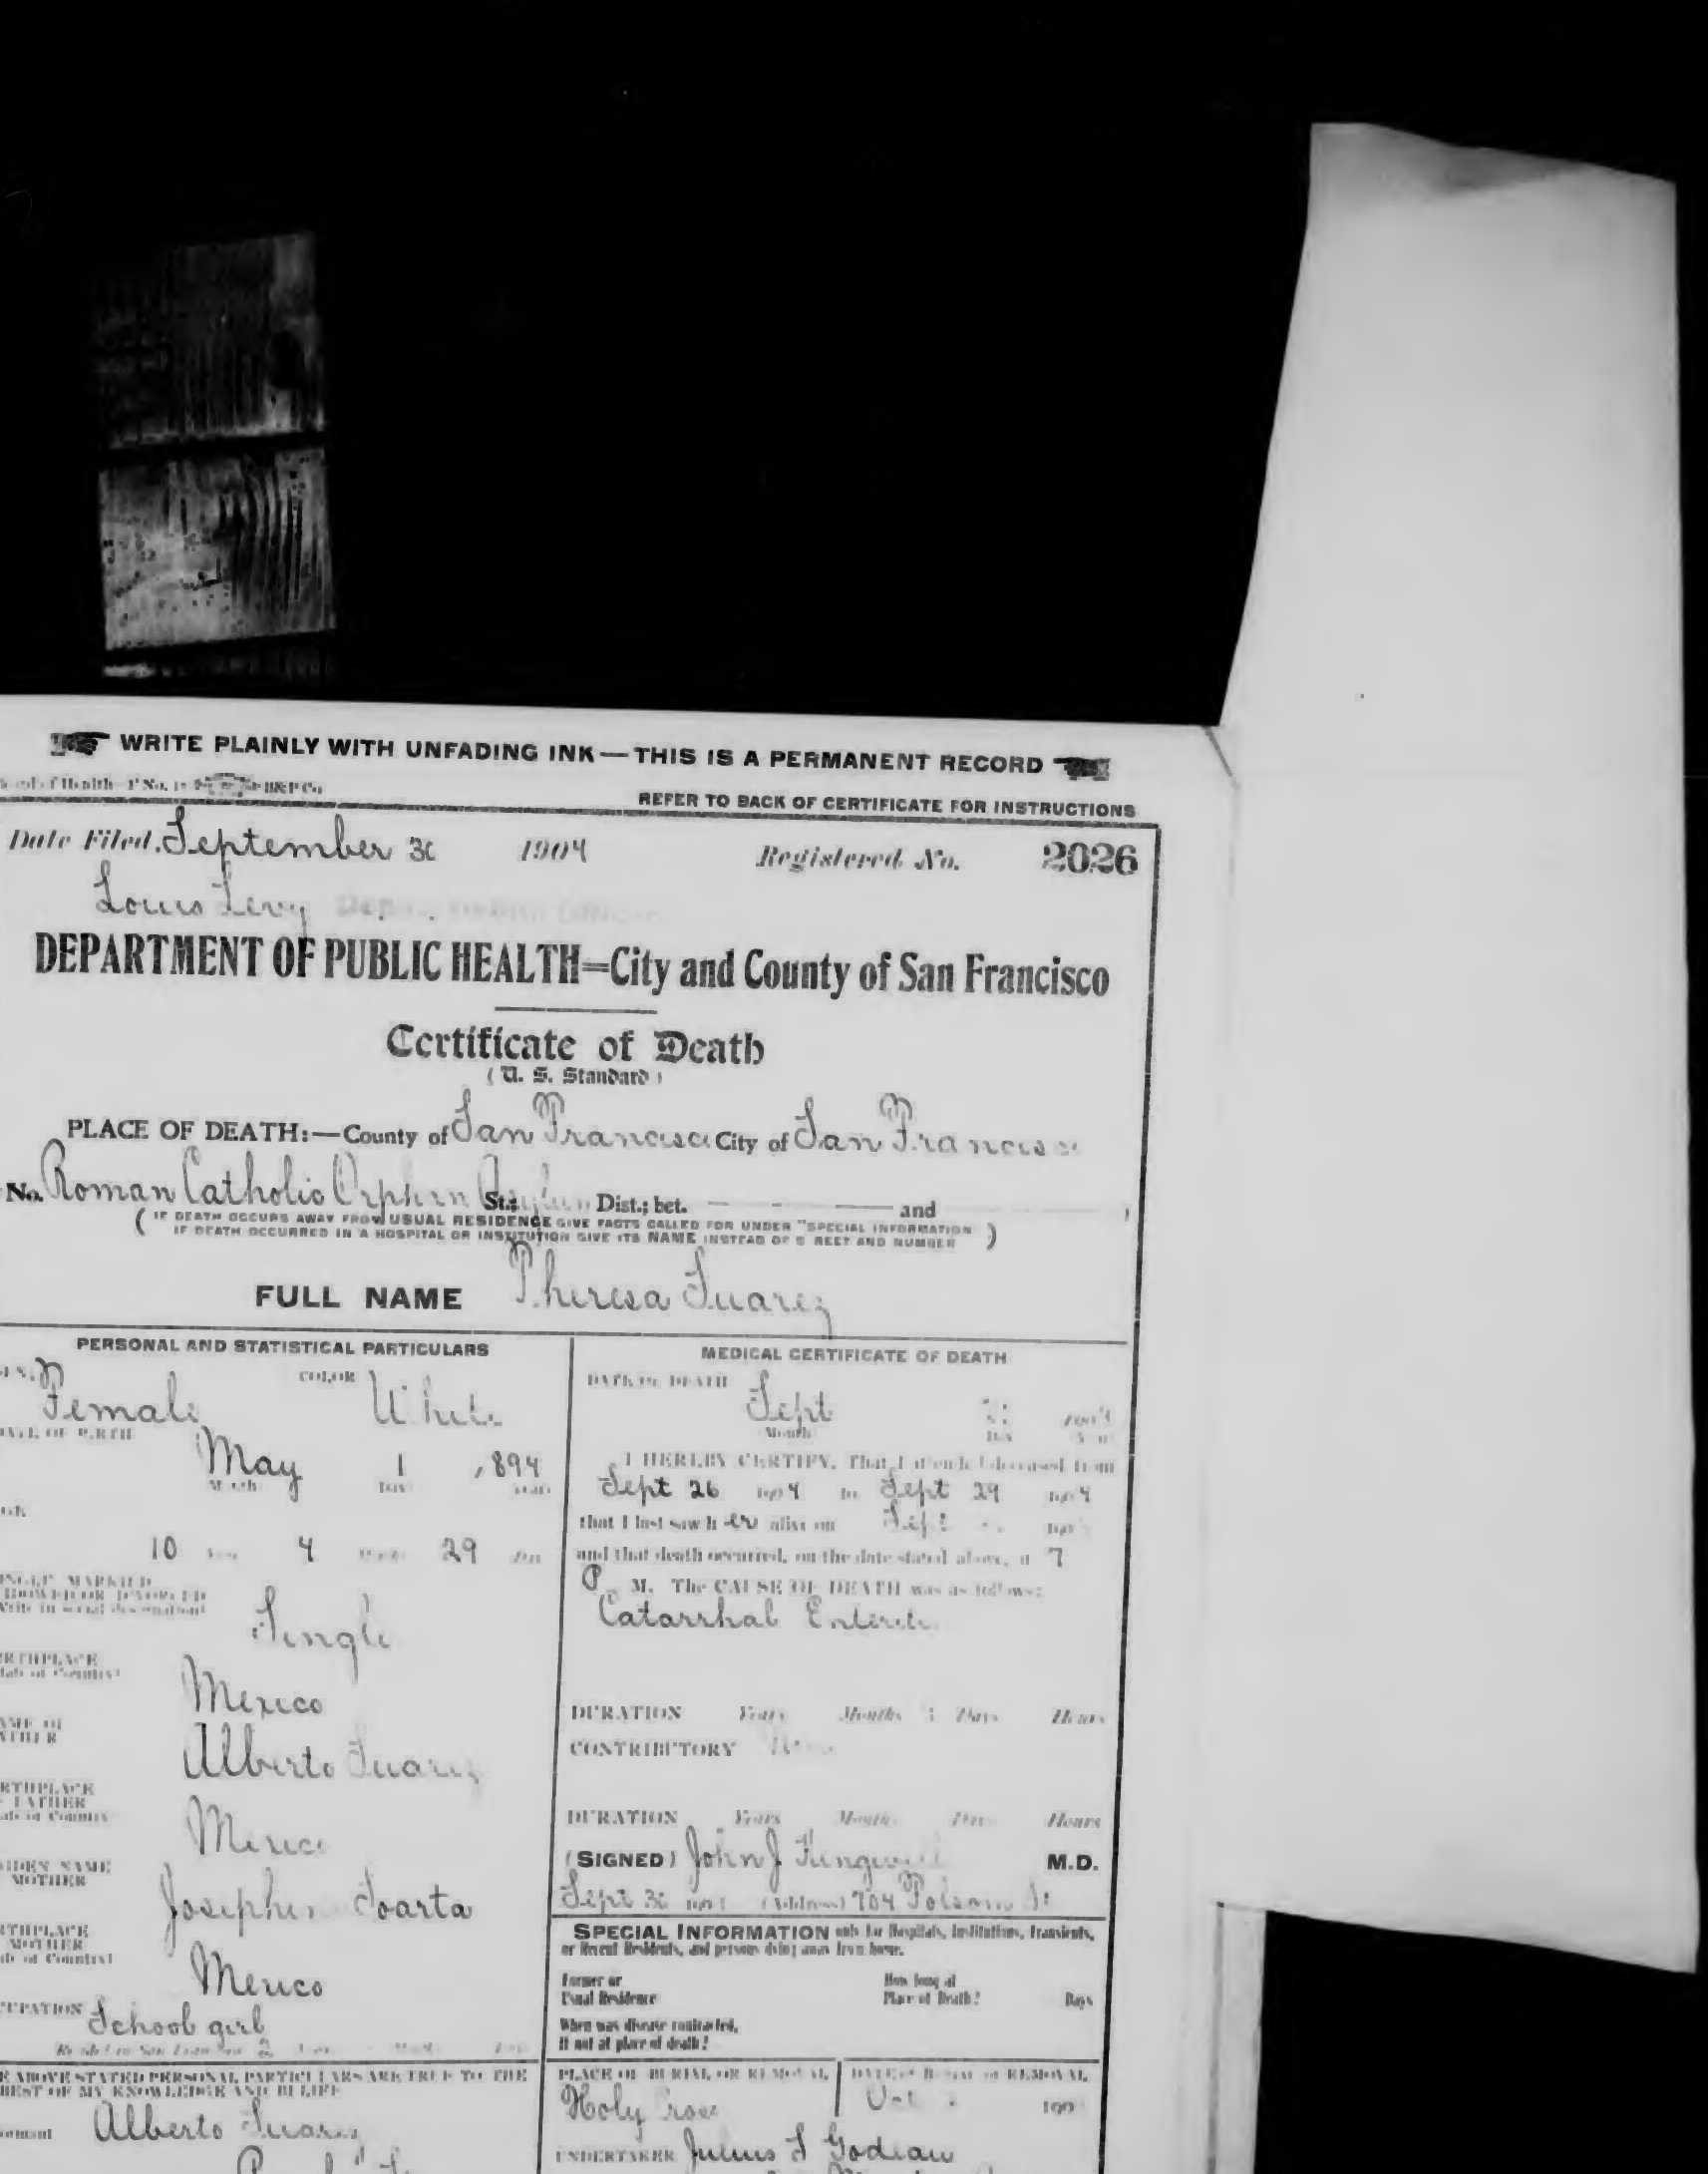 WRITE PLAINLY WITH UNFADING INK — THIS IS A PERMANENT RECORD
of Health
REFER TO BACK OF CERTIFICATE FOR INSTRUCTIONS
Date Filed, September 30 1904 Registered No. 2026
Louis Levy
DEPARTMENT OF PUBLIC HEALTH=City and County of San Francisco
Certificate of Death
(U. S. Standard)
PLACE OF DEATH:—County of San Francisco City of San Francisco
No. Roman Catholic Orphan Asylum St.; Dist.; bet. and
(IF DEATH OCCURS AWAY FROM USUAL RESIDENCE GIVE FACTS CALLED FOR UNDER "SPECIAL INFORMATION
IF DEATH OCCURRED IN A HOSPITAL OR INSTITUTION GIVE ITS NAME INSTEAD OF STREET AND NUMBER)
FULL NAME Theresa Suarez
PERSONAL AND STATISTICAL PARTICULARS
COLOR
Female White
DATE OF BIRTH
May 1 1894
Month Day
10 4 29
SINGLE MARRIED
WIDOWED OR DIVORCED
Single
BIRTHPLACE
Mexico
NAME OF
FATHER
Alberto Suarez
BIRTHPLACE
OF FATHER
Mexico
MAIDEN NAME
MOTHER
Josephine Soarta
BIRTHPLACE
MOTHER
Mexico
OCCUPATION School girl
Resided in San Francisco 2
THE ABOVE STATED PERSONAL PARTICULARS ARE TRUE TO THE
BEST OF MY KNOWLEDGE AND BELIEF
Alberto Suarez
MEDICAL CERTIFICATE OF DEATH
DATE OF DEATH
Sept
Month Day
I HEREBY CERTIFY, That I attended deceased from
Sept 26 1904 to Sept 29 1904
that I last saw her alive on Sept 190
and that death occurred, on the date stated above, at 7
P. M. The CAUSE OF DEATH was as follows:
Catarrhal Enteritis
DURATION Years Months Days Hours
CONTRIBUTORY
DURATION Years Months Days Hours
(SIGNED) John J M.D.
Sept 30 190 (Address) 704 Folsom St
SPECIAL INFORMATION only for Hospitals, Institutions, Transients,
or Recent Residents, and persons dying away from home.
Former or
Usual Residence
How long at
Place of Death? Days
When was disease contracted,
If not at place of death?
PLACE OF BURIAL OR REMOVAL DATE OF BURIAL OR REMOVAL
Holy Cross 190
UNDERTAKER Julius S Godeau